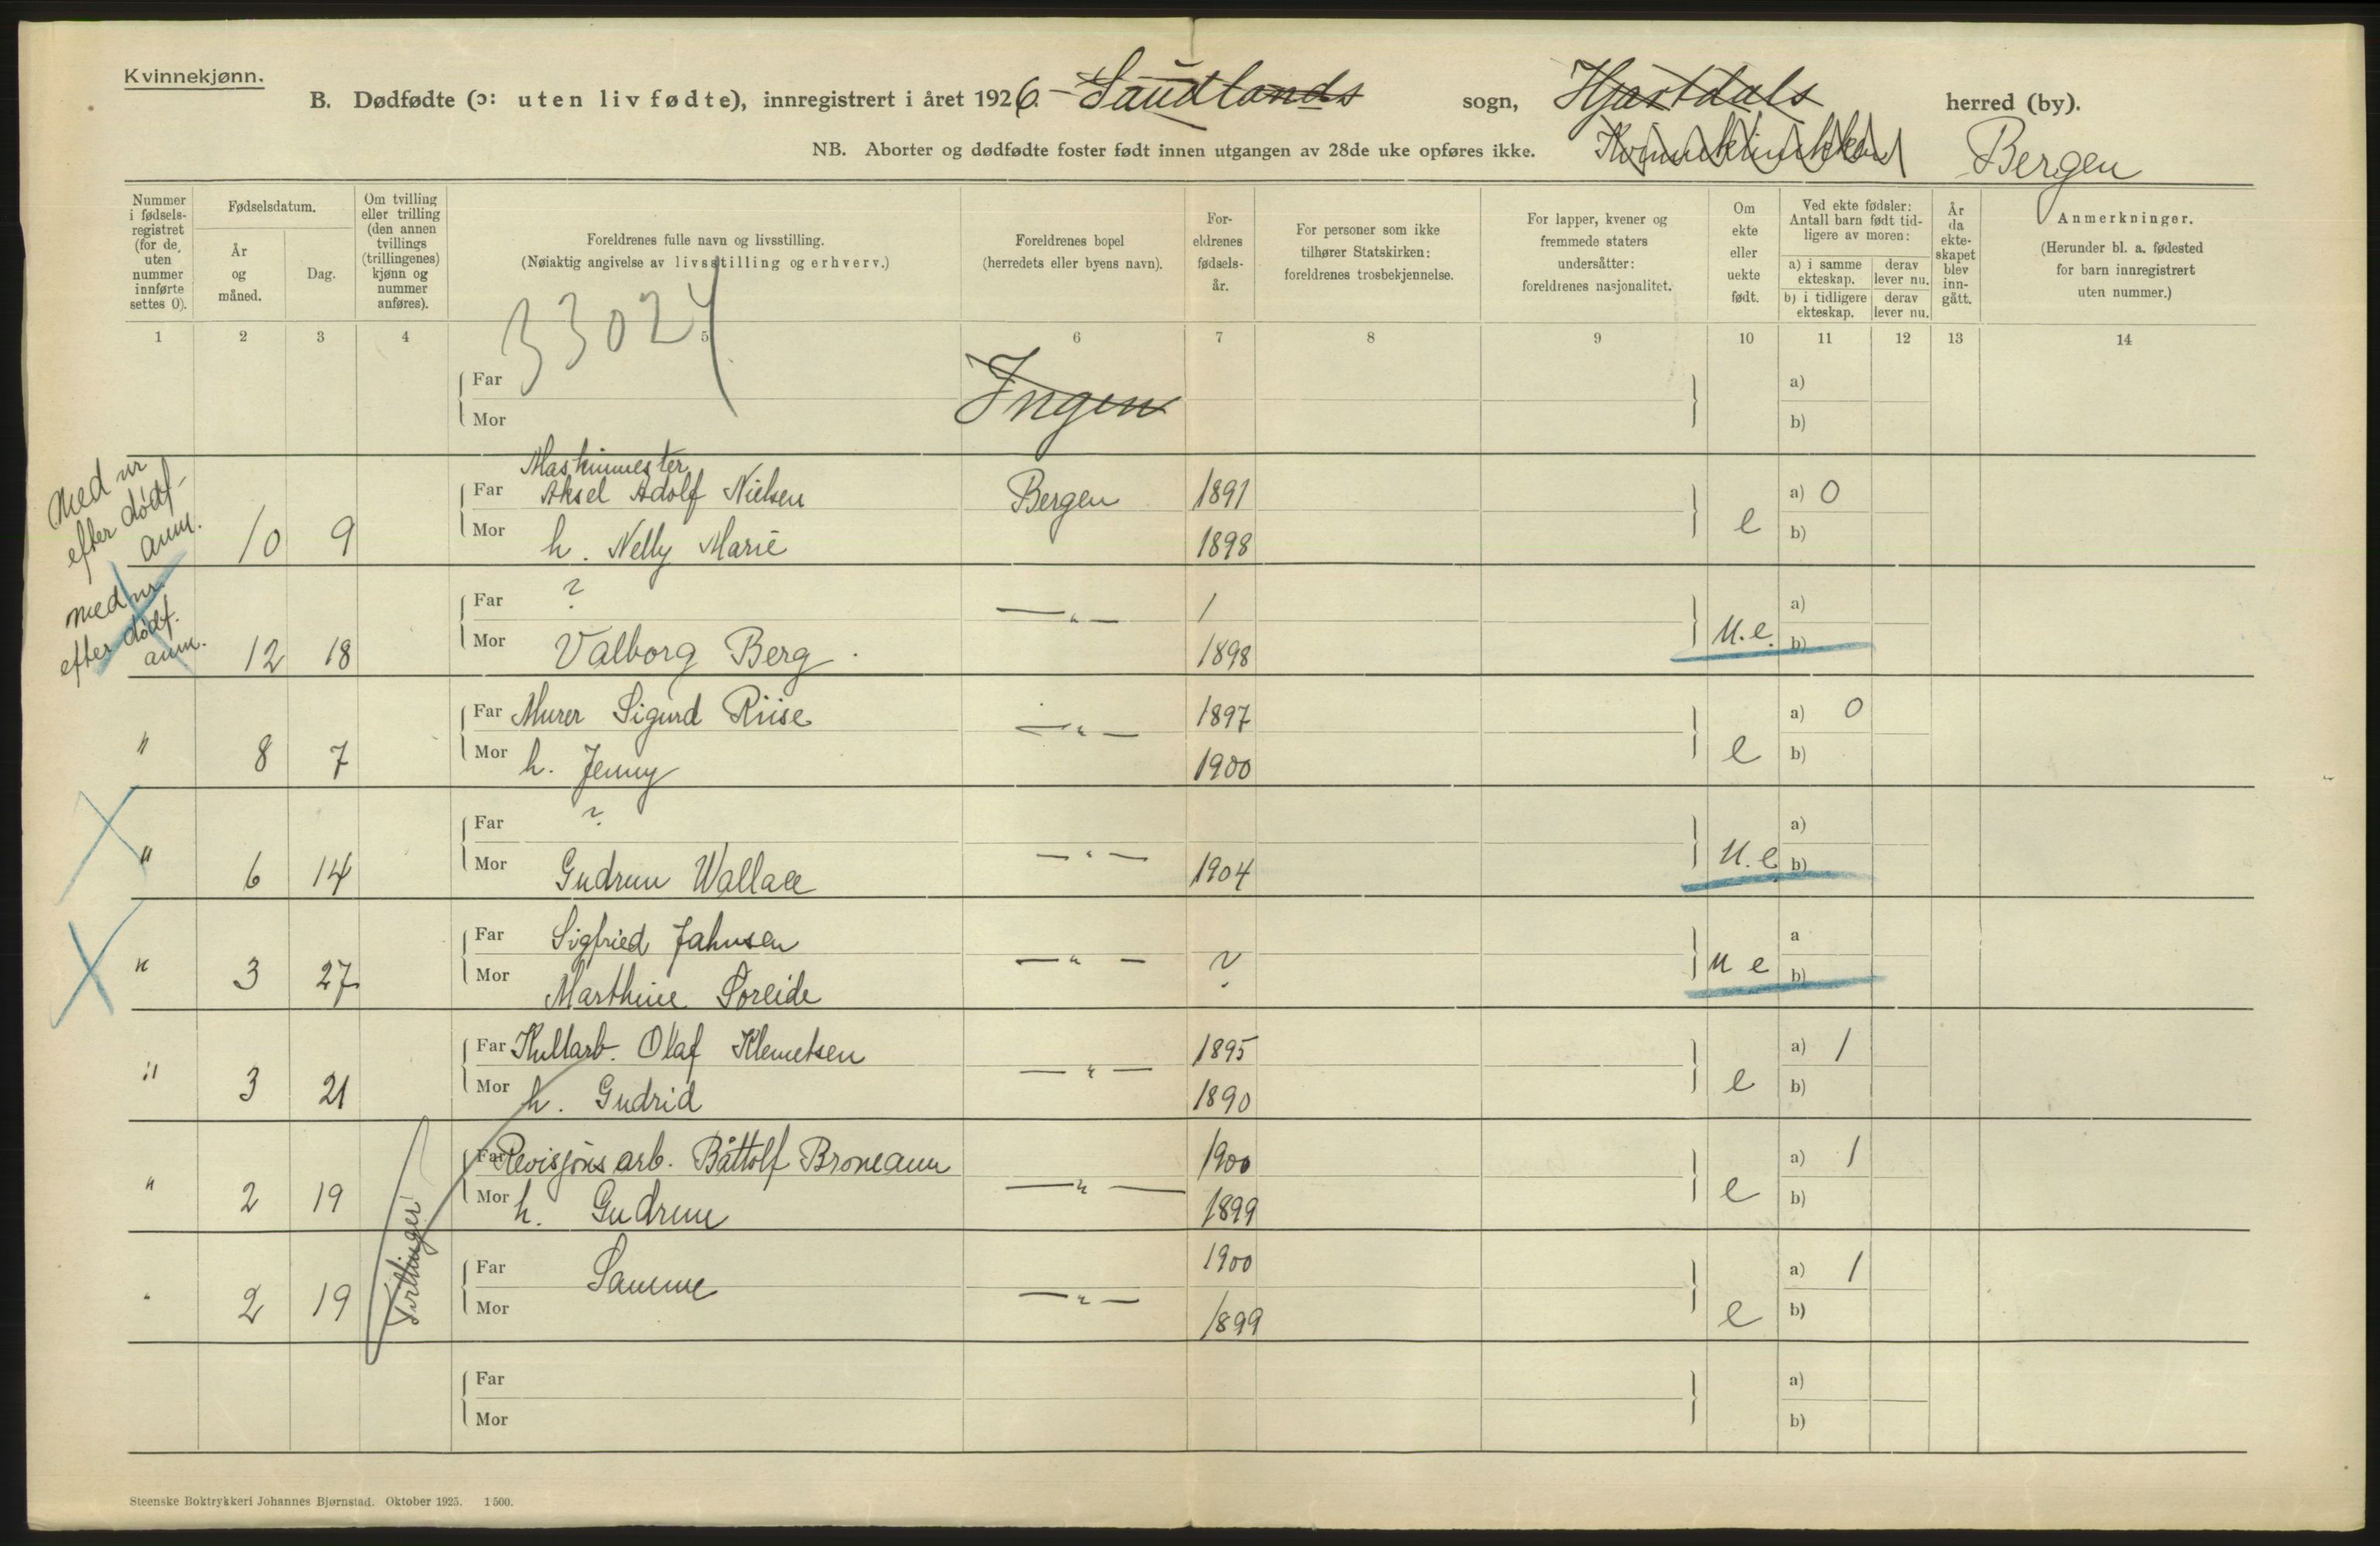 Kvinnekjønn.
B. Dødfødte (ɔ: uten liv fødte), innregistrert i året 1926. - Saudlands sogn, Hjartdals herred (by).
NB. Aborter og dødfødte foster født innen utgangen av 28de uke opføres ikke. Kvinneklinikken Bergen
Nummer i fødsels-registret (for de uten nummer innførte settes 0).
Fødselsdatum.
År og måned.
Dag.
Om tvilling eller trilling (den annen tvillings (trillingenes) kjønn og nummer anføres).
Foreldrenes fulle navn og livsstilling.
(Nøiaktig angivelse av livsstilling og erhverv.)
Foreldrenes bopel
(herredets eller byens navn).
For-eldrenes fødsels-år.
For personer som ikke tilhører Statskirken: foreldrenes trosbekjennelse.
For lapper, kvener og fremmede staters undersåtter: foreldrenes nasjonalitet.
Om ekte eller uekte født.
Ved ekte fødsler: Antall barn født tid-ligere av moren:
a) i samme ekteskap. derav lever nu.
b) i tidligere ekteskap. derav lever nu.
År da ekte-skapet blev inn-gått.
Anmerkninger.
(Herunder bl. a. fødested for barn innregistrert uten nummer.)
1 2 3 4 5 6 7 8 9 10 11 12 13 14
33024
Far Ingen a)
Mor b)
Med nr efter dødf. anm.
Maskinmester
Far Aksel Adolf Nielsen Bergen 1891 a) 0
10 9 Mor h. Nelly Marie 1898 e b)
med nr. efter dødf. anm.
Far ? —"— / a)
12 18 Mor Valborg Berg. 1898 U.e. b)
Far Murer Sigurd Riise —"— 1897 a) 0
" 8 7 Mor h. Jenny 1900 e b)
Far ? a)
" 6 14 Mor Gudrun Wallace —"— 1904 U.e b)
Far Sigfried Jahnsen a
" 3 27 Mor Marthine Søreide —"— ? U e b)
Far Kullarb. Olaf Klemetsen 1895 a) 1
" 3 21 Mor h. Gudrid —"— 1890 e b)
Far Revisjons arb. Båttolf 1900 a) 1
" 2 19 Mor h. Gudrun —"— 1899 e b)
Far Samme 1900 a) 1
" 2 19 Mor —"— 1899 e b)
Far a)
Mor b)
Steenske Boktrykkeri Johannes Bjørnstad. Oktober 1925. 1500.